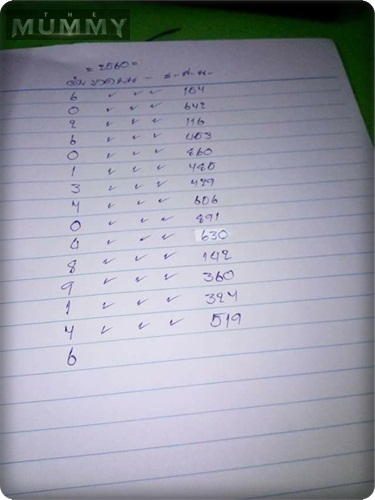 THE
MUMMY
= 2560 =
- ธ.ส.น.
6 ✓ ✓ ✓ 164
0 ✓ ✓ ✓ 642
2 ✓ ✓ ✓ 116
6 ✓ ✓ ✓ 403
0 ✓ ✓ ✓ 260
1 ✓ ✓ ✓ 485
3 ✓ ✓ ✓ 429
4 ✓ ✓ ✓ 606
0 ✓ ✓ ✓ 291
4 ✓ ✓ ✓ 630
8 ✓ ✓ ✓ 142
9 ✓ ✓ ✓ 360
1 ✓ ✓ ✓ 324
4 ✓ ✓ ✓ 519
6